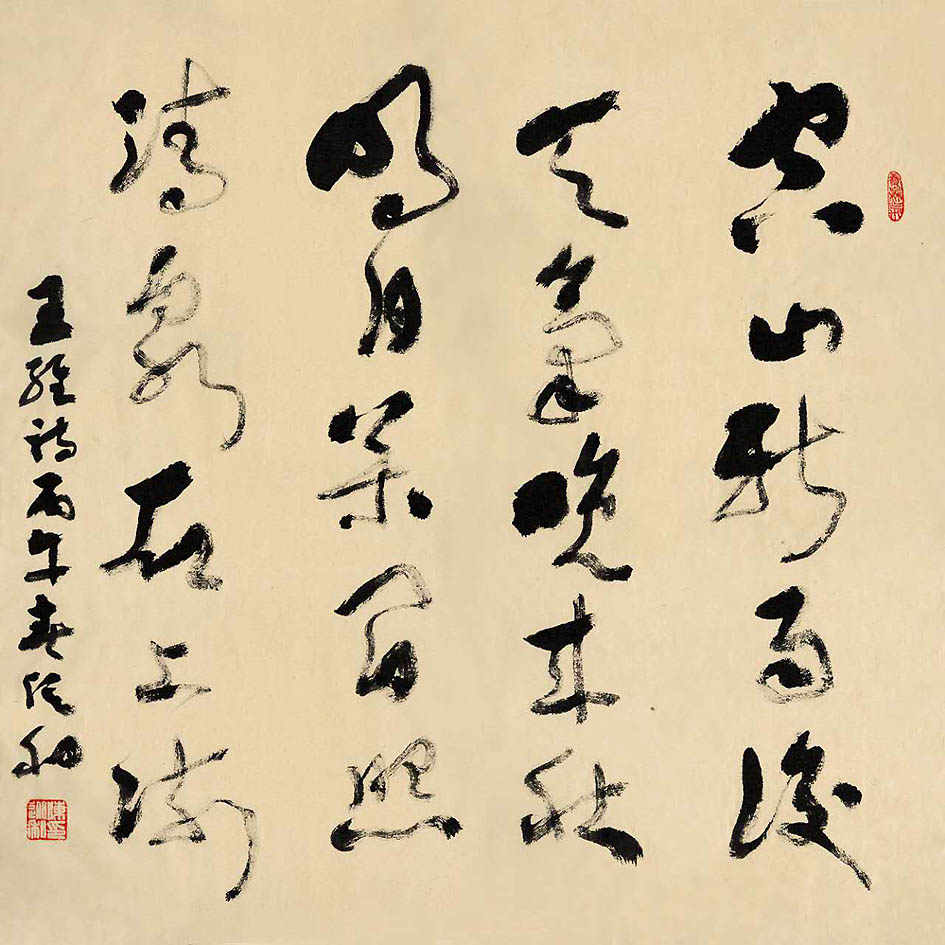 空山新雨後
天氣晚来秋
明月松間照
清泉石上流
王維詩丙午春